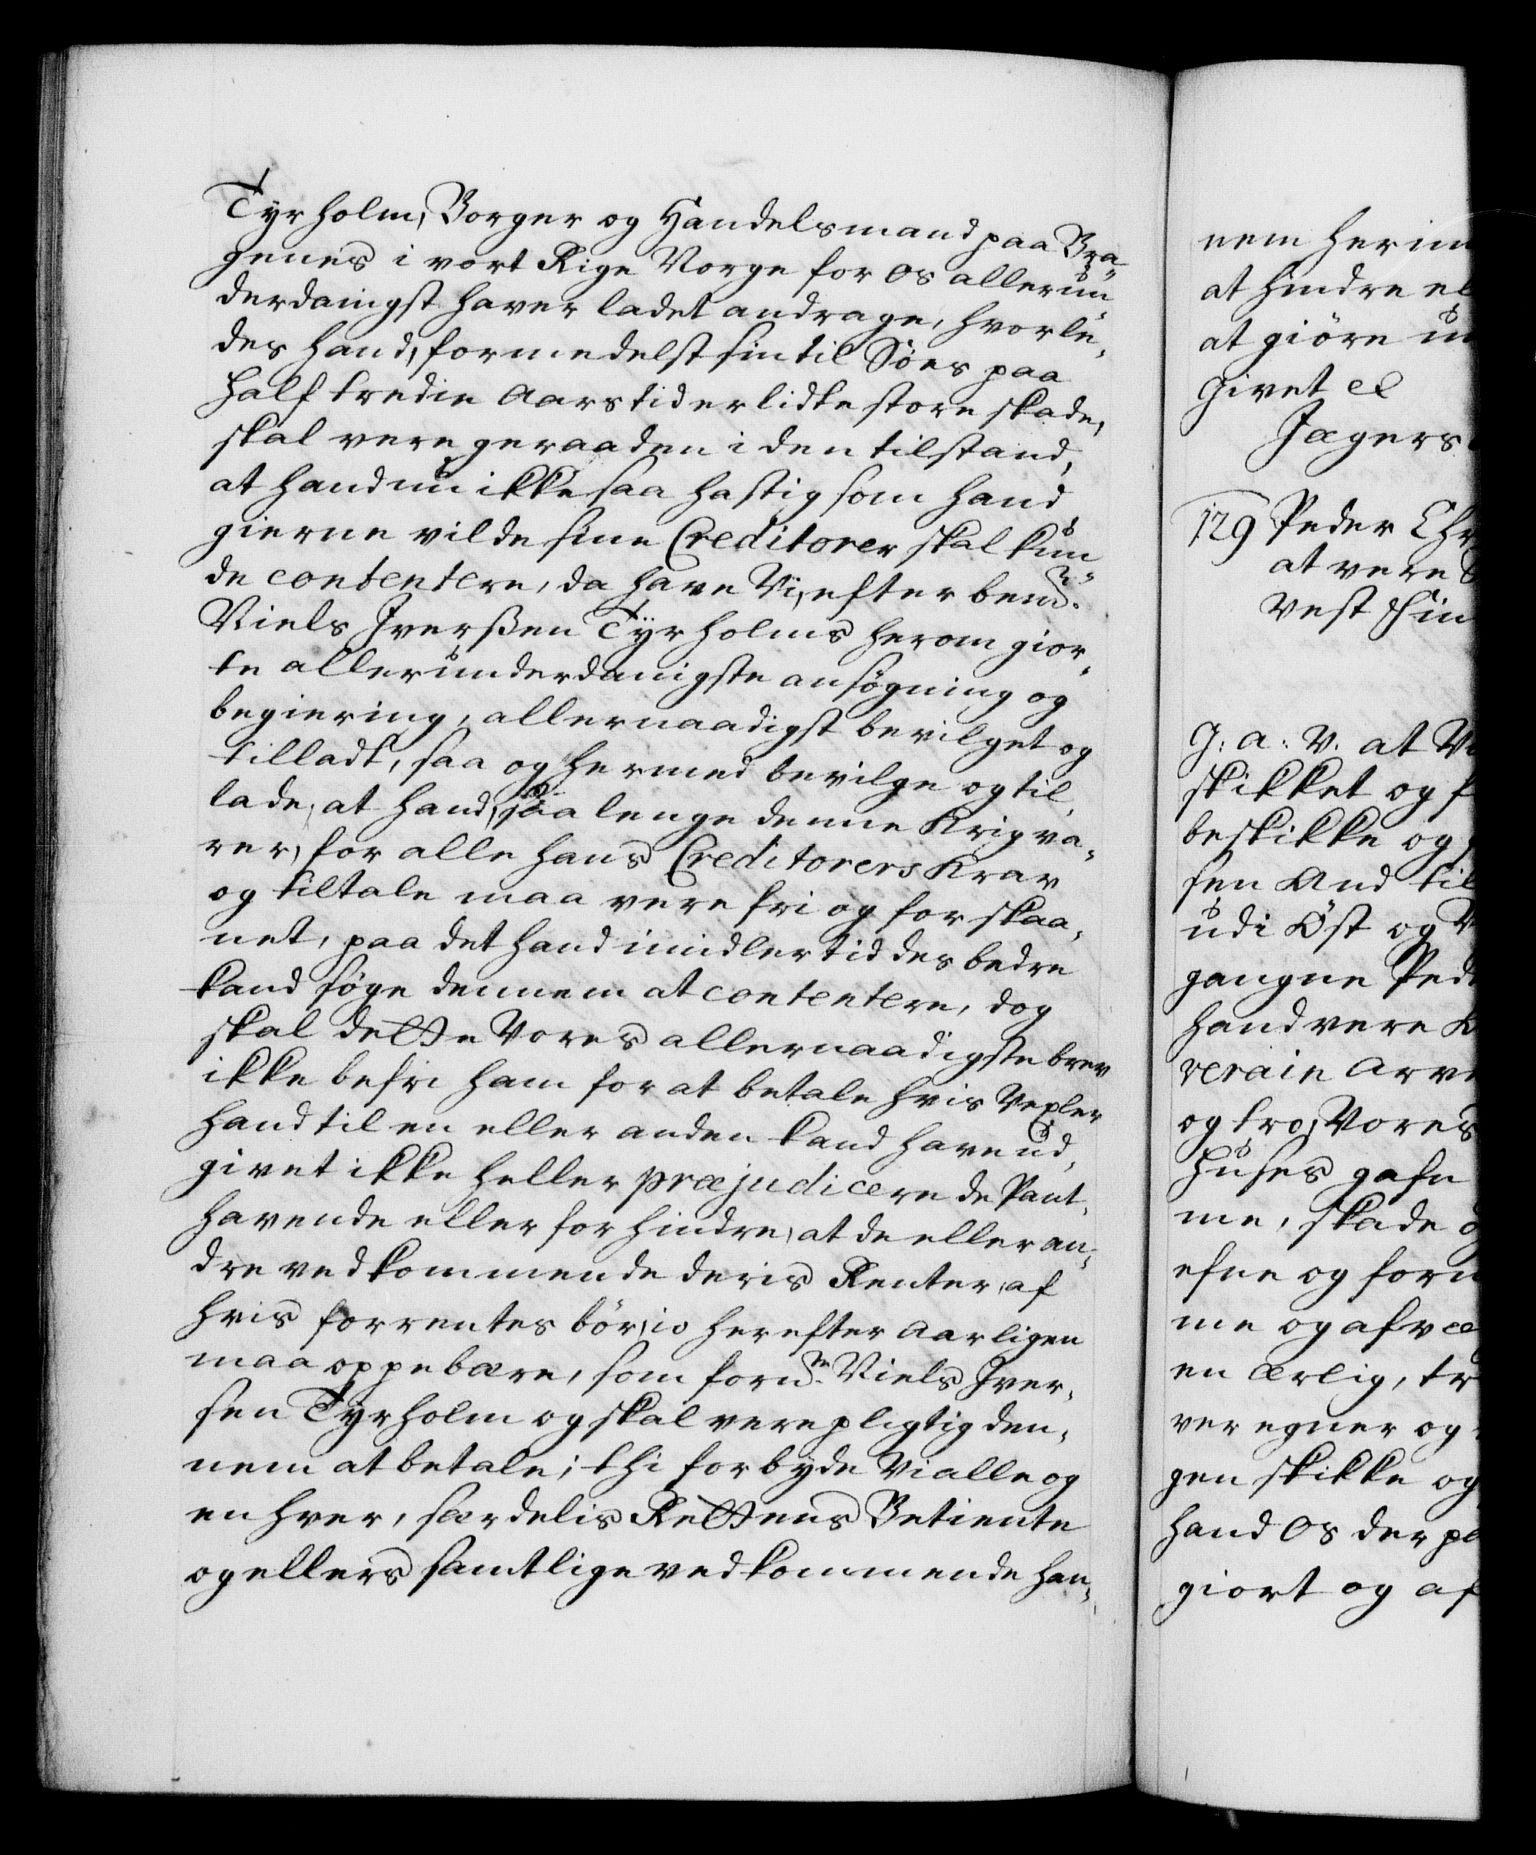 Tyrholm, Borger og Handelsmand paa Bra-
genes i vort Rige Norge for os allerun-
derdanigst haver ladet andrage, hvorle-
des hand, formedelst sin til Söes paa
half tredie Aars tid erlidte store skade,
skal vere geraaden i den tilstand,
at hand nu ikke saa hastig som hand
gierne vilde sine Creditorer skal kun-
de contentere, da have Vi, efter bemte.
Niels Iverßen Tyrholms herom gior-
te allerunderdanigste ansøgning og
begiering, allernaadigst bevilget og
tilladt, saa og hermed bevilge og til-
lade, at hand, saa lenge denne Krig va-
rer, for alle hans Creditorers Krav
og tiltale maa vere fri og forskaa-
net, paa det hand imidlertid des bedre
kand søge dennem at contentere, dog
skal dette Vores allernaadigste brev
ikke befri ham for at betale hvis Vexler
hand til en eller anden kand have ud-
givet ikke heller præjudicere de Pant-
havende eller forhindre, at de eller an-
dre vedkommende deris Renter, af
hvis forrentes bör, io herefter Aarligen
maa oppebære, som fornte. Niels Iver-
sen Tyrholm og skal vere pligtig den-
nem at betale; thi forbyde Vi alle og
en hver, særdelis Rettens Betiente
og ellers samtlige vedkommende han-
nem herim
at hindre el
at giöre u
givet &
Jægers
129 Peder Chr
at vere
Vest Fin
G: A: V. at Vi
skikket og f
beskikke og
sen And til
udi Öst og V
gangne Ped
hand vere K
verain Arv
og tro, Vores
Huses gafn
me, skade
efne og form
me og afvæ
en ærlig, tr
ver egner og
gen skikke og
hand os der pa
giort og af